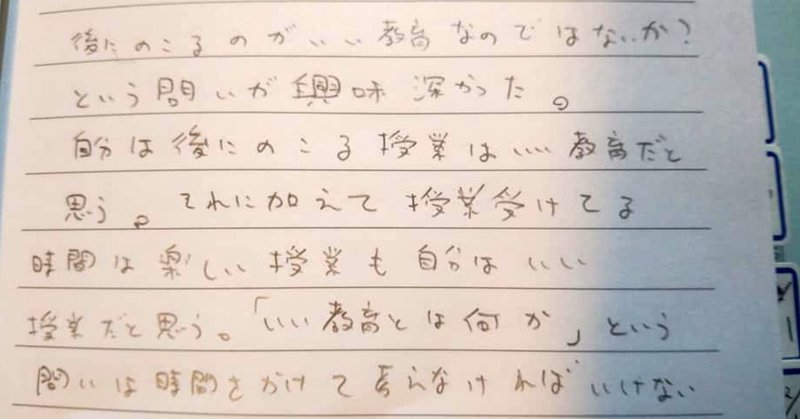 後にのこるのがいい教育なのではないか?
という問いが興味深かった。
自分は後にのこる授業はいい教育だと
思う。それに加えて授業受けてる
時間は楽しい授業も自分はいい
授業だと思う。「いい教育とは何か」という
問いは時間をかけて考えなければいけない